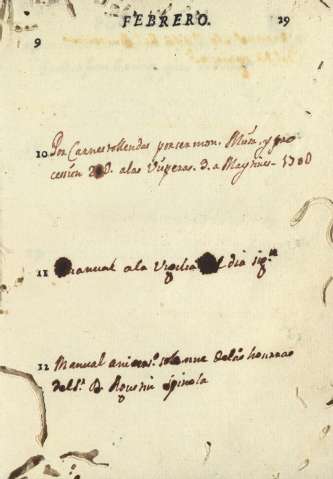 FEBRERO. 29
9
10 Por Carnestollendas por sermon, Missa, y pro
cesion 200. a las Visperas. d. a Maytines - 1700
11 Manual a la Vigilia del dia sig.te
12 Manual anivers.o solemne de las honrras
del S.r D Agustin Spinola